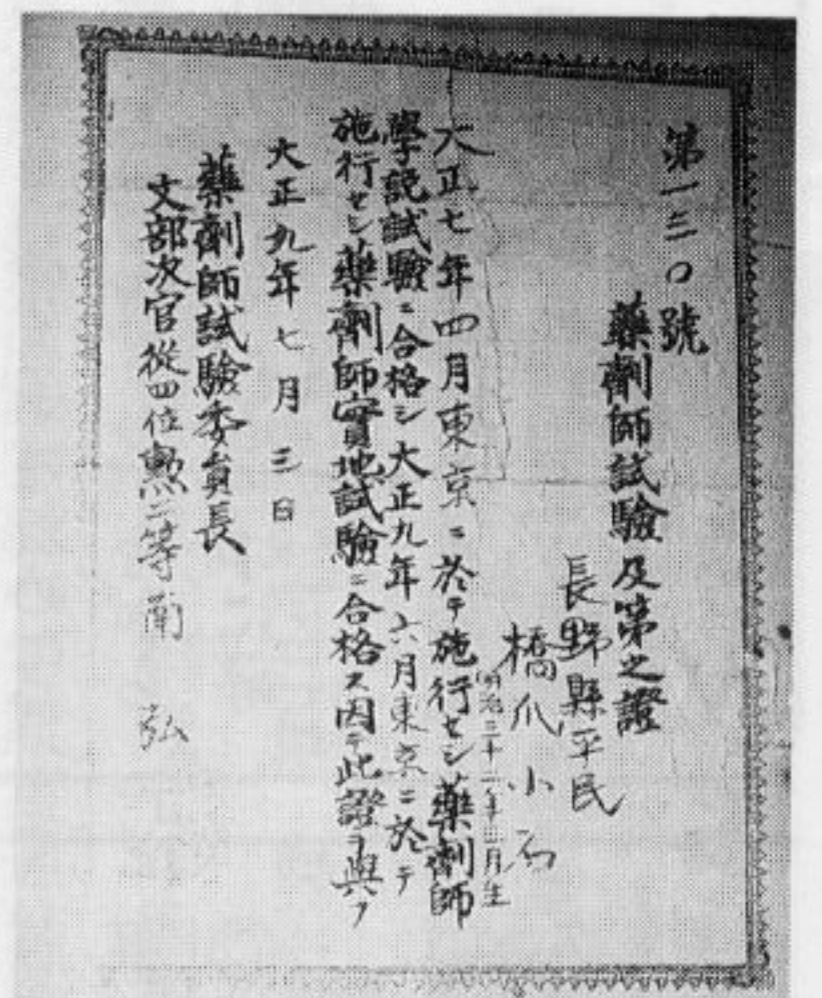 第一三〇號
藥劑師試驗及第之證
長野縣平民
橋爪小
明治三十二年 月生
大正七年四月東京ニ於テ施行セシ藥劑師
學説試驗ニ合格シ大正九年六月東京ニ於テ
施行セシ藥劑師實地試驗ニ合格ス因テ此證ヲ與フ
大正九年七月三日
藥劑師試驗委員長
文部次官從四位勲二等南 弘